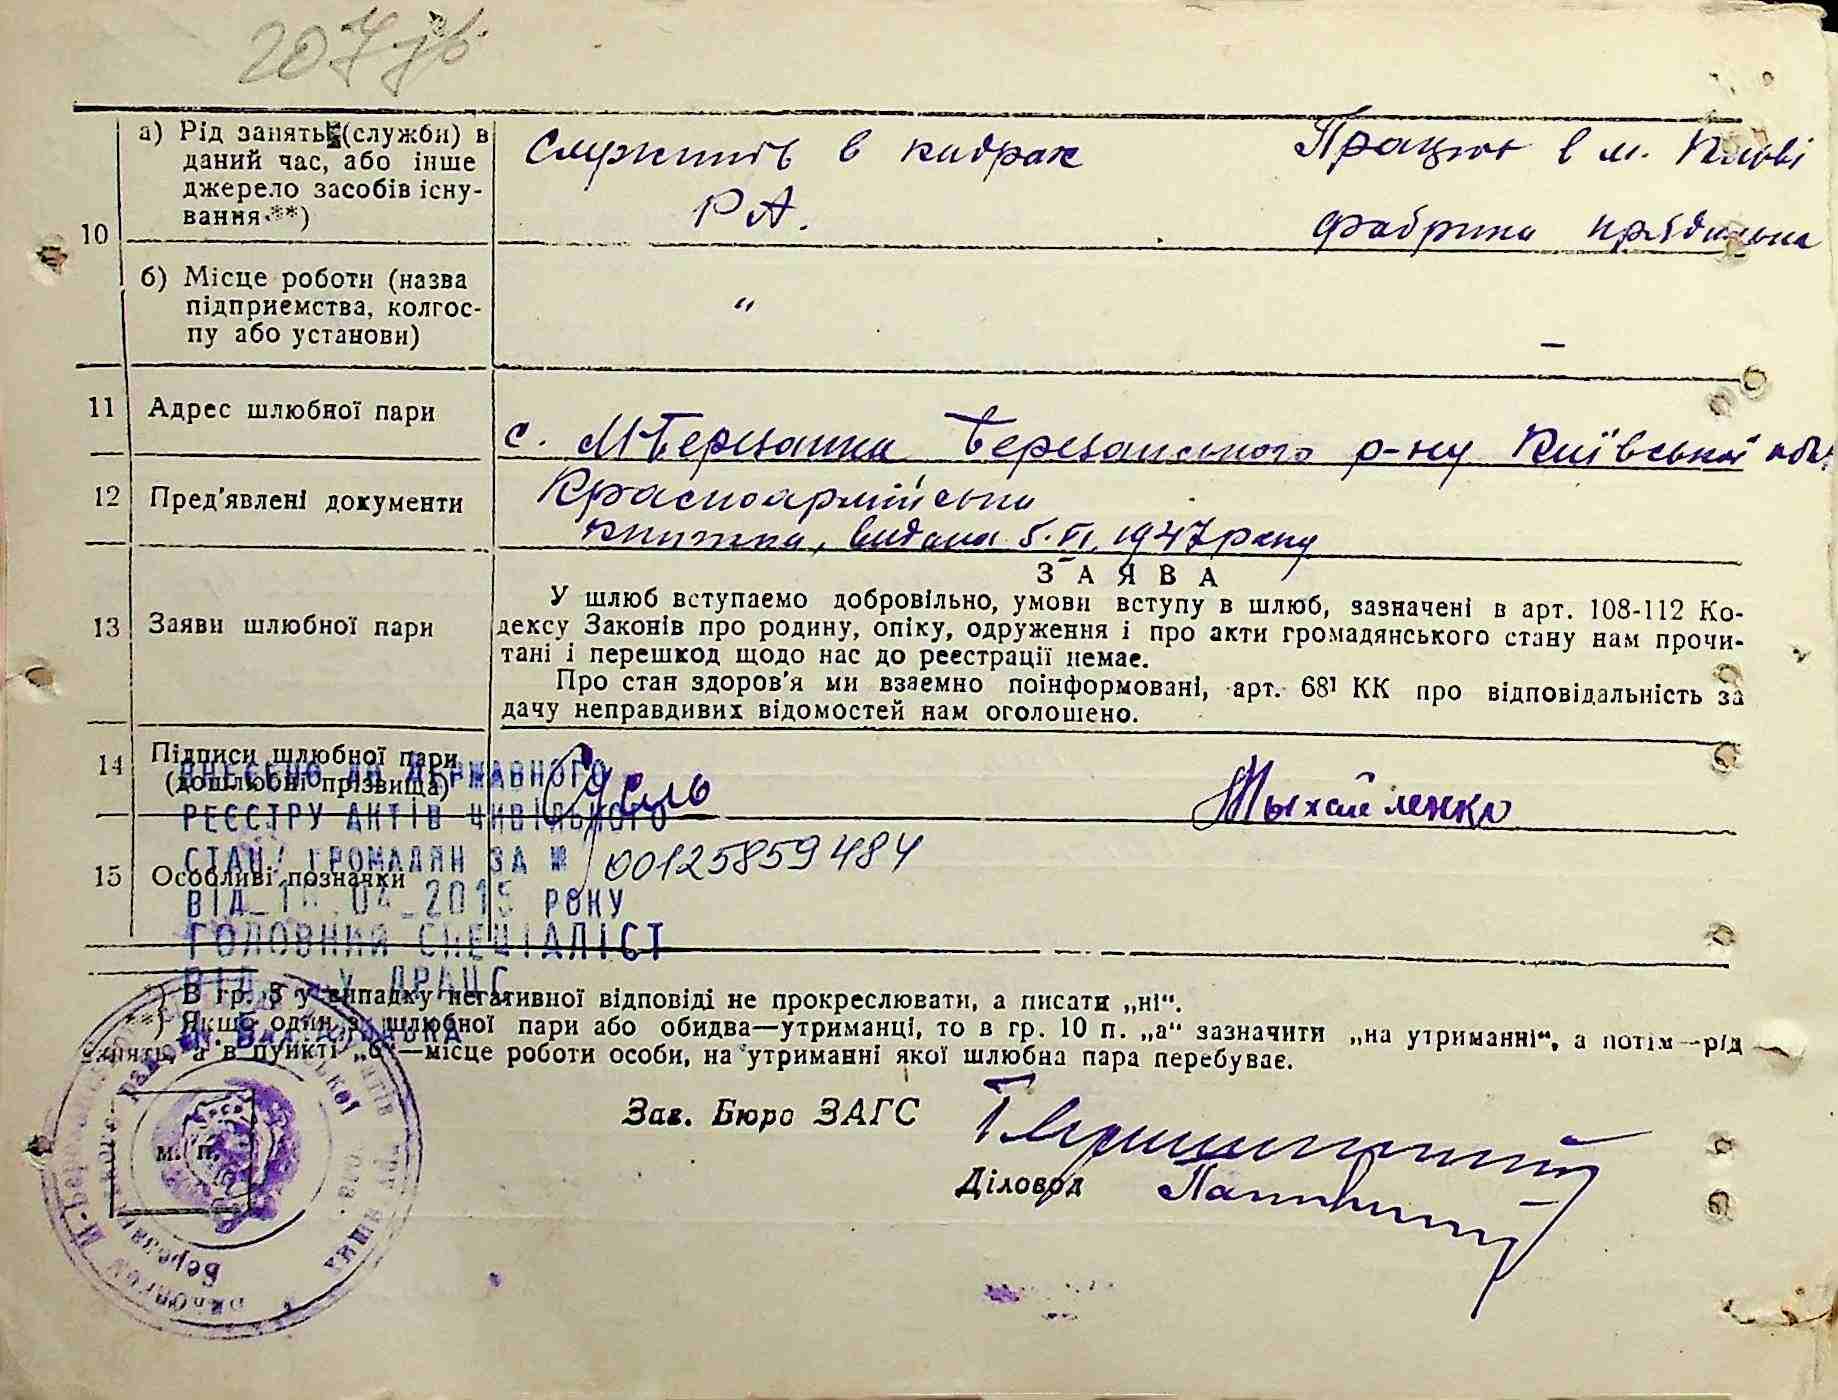 207
10
а) Рід занять (служби) в
даний час, або інше
джерело засобів існу-
вання **)
Служить в кадрах
РА.
Працює в м. Києві
фабрика прядильна
б) Місце роботи (назва
підприємства, колгос-
пу або установи)
"
–
11 Адрес шлюбної пари
с. М-Березанка Березанського р-ну Київської обл.
12 Пред'явлені документи
Красноармійська
книжка, видана 5.VI.1947 року
13 Заяви шлюбної пари
ЗАЯВА
У шлюб вступаємо добровільно, умови вступу в шлюб, зазначені в арт. 108-112 Ко-
дексу Законів про родину, опіку, одруження і про акти громадянського стану нам прочи-
тані і перешкод щодо нас до реєстрації немає.
Про стан здоров'я ми взаємно поінформовані, арт. 68¹ КК про відповідальність за
дачу неправдивих відомостей нам оголошено.
14 Підписи шлюбної пари
(дошлюбні прізвища)
Мыхайленко
ВНЕСЕНО ДО ДЕРЖАВНОГО
РЕЄСТРУ АКТІВ ЦИВІЛЬНОГО
СТАНУ ГРОМАДЯН ЗА № 00125859484
15 Особливі позначки
ВІД 04 2015 РОКУ
ГОЛОВНИЙ СПЕЦІАЛІСТ
ВІДДІЛУ ДРАЦС
*) В гр. 8 у випадку негативної відповіді не прокреслювати, а писати „ні".
**) Якщо один з шлюбної пари або обидва—утриманці, то в гр. 10 п. „а" зазначити „на утриманні", а потім—рід
занять, а в пункті „б"—місце роботи особи, на утриманні якої шлюбна пара перебуває.
Зав. Бюро ЗАГС
Діловод
м. п.